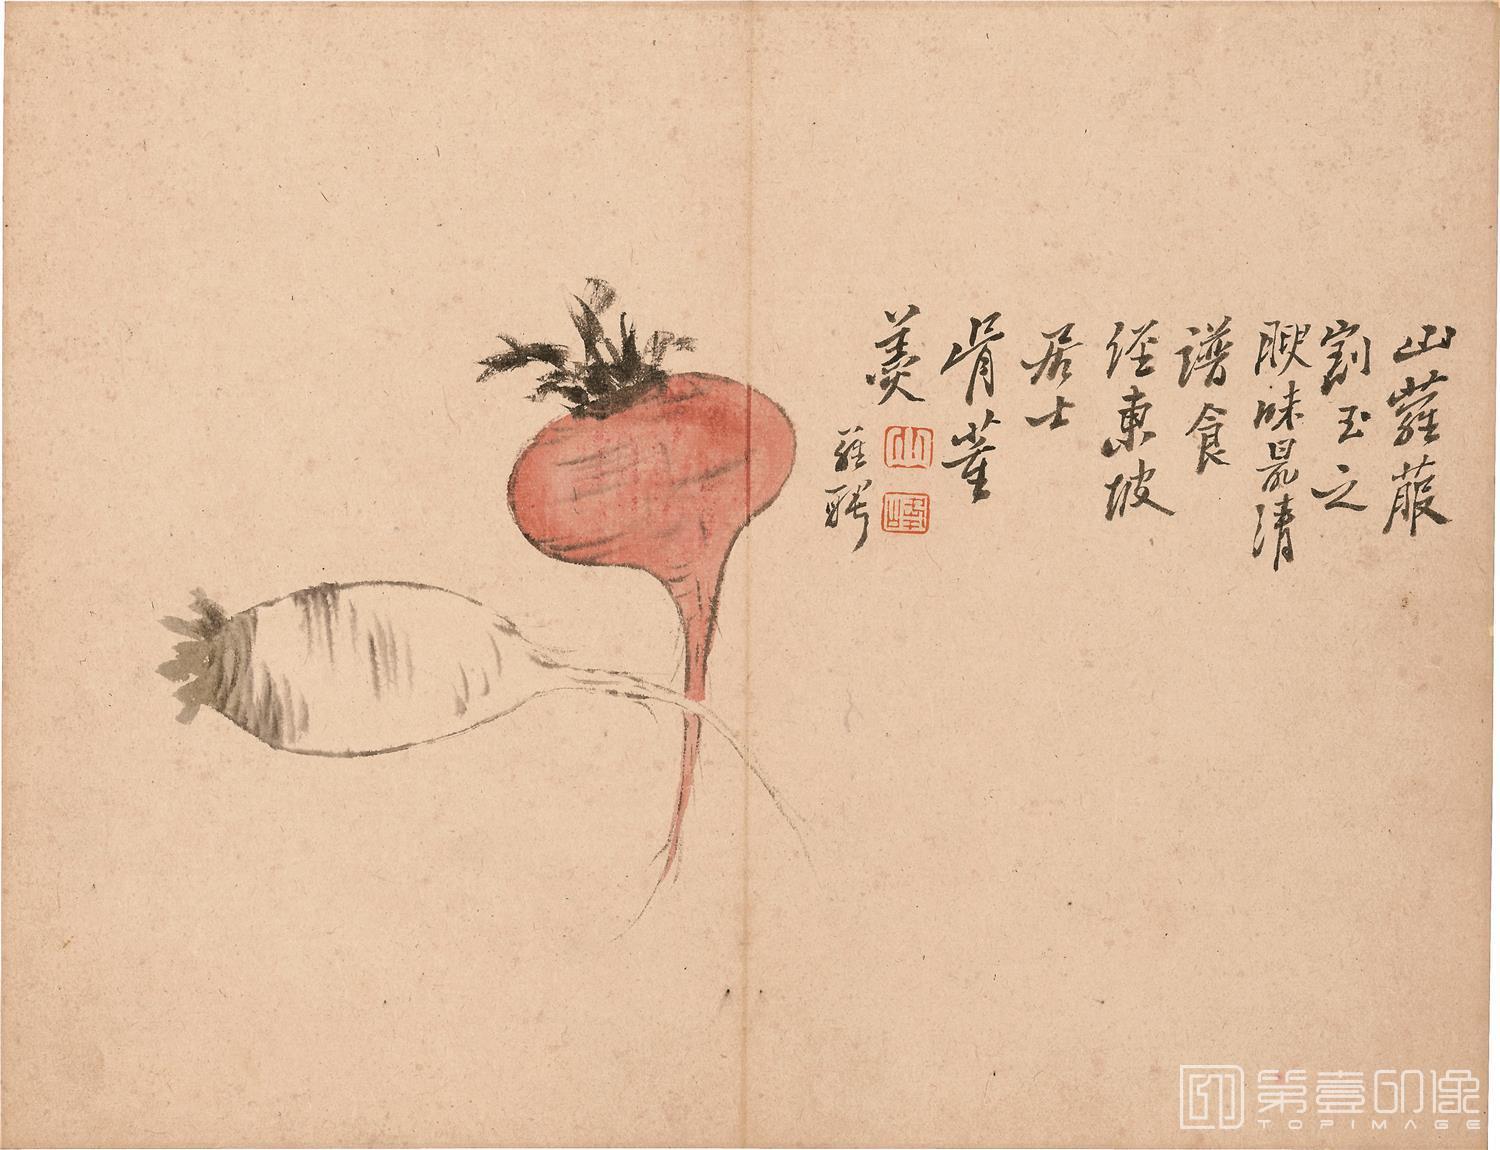 山蘿菔
割玉之
腴味最清
譜食
經東坡
居士
骨董
羹
羅聘
第壹印像
TOPIMAGE